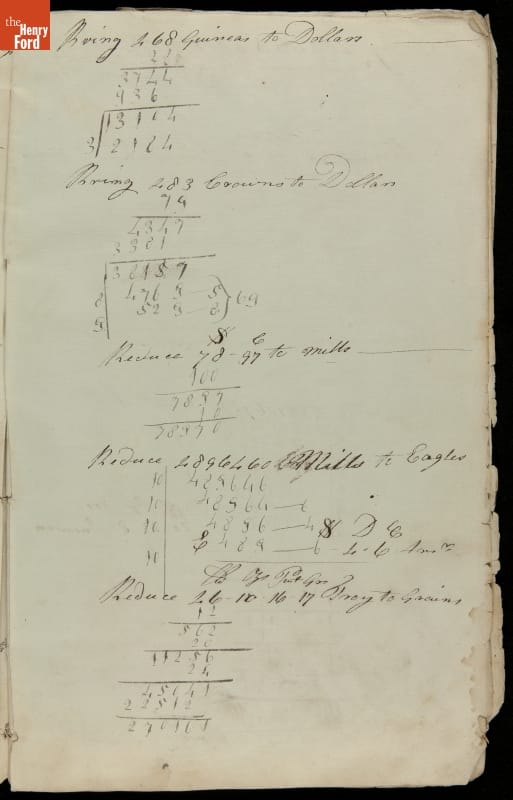 the
Henry
Ford
Bring 468 Guineas to Dollars
3744
936
13104
3 2184
Bring 483 Crowns to Dollars
79
4347
3381
38157
4768 5
52 9 8 } 69
$ C
Reduce 78 - 97 to Mills
100
7897
10
78970
Reduce 4896460 Mills to Eagles
10 489646
10 48964 6
10 4896 4 $ D C
10 E 489 6 - 4 - 6 Ans
Reduce 46 - 10 - 16 - 17 Troy to Grains
12
562
20
11256
24
45041
22512
270161